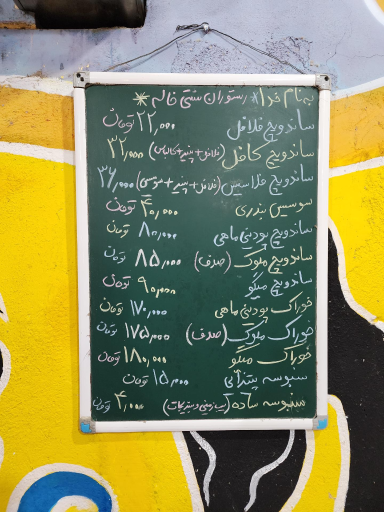 به نام خدا * رستوران سنتی خاله *
ساندویچ فلافل ۲۲,۰۰۰ تومان
ساندویچ کافل (فلافل+پنیر+کالباس) ۳۲,۰۰۰
ساندویچ فلاسیس (فلافل+پنیر+سوسیس) ۳۶,۰۰۰ تومان
سوسیس بندری ۴۰,۰۰۰ تومان
ساندویچ پودینی ماهی ۸۰,۰۰۰ تومان
ساندویچ ملوک (صدف) ۸۵,۰۰۰ تومان
ساندویچ میگو ۹۰,۰۰۰ تومان
خوراک پودینی ماهی ۱۷۰,۰۰۰ تومان
خوراک ملوک (صدف) ۱۷۵,۰۰۰ تومان
خوراک میگو ۱۸۰,۰۰۰ تومان
سمبوسه پیتزائی ۱۵,۰۰۰ تومان
سمبوسه ساده (سیب زمینی و سبزیجات) ۴,۰۰۰ تومان